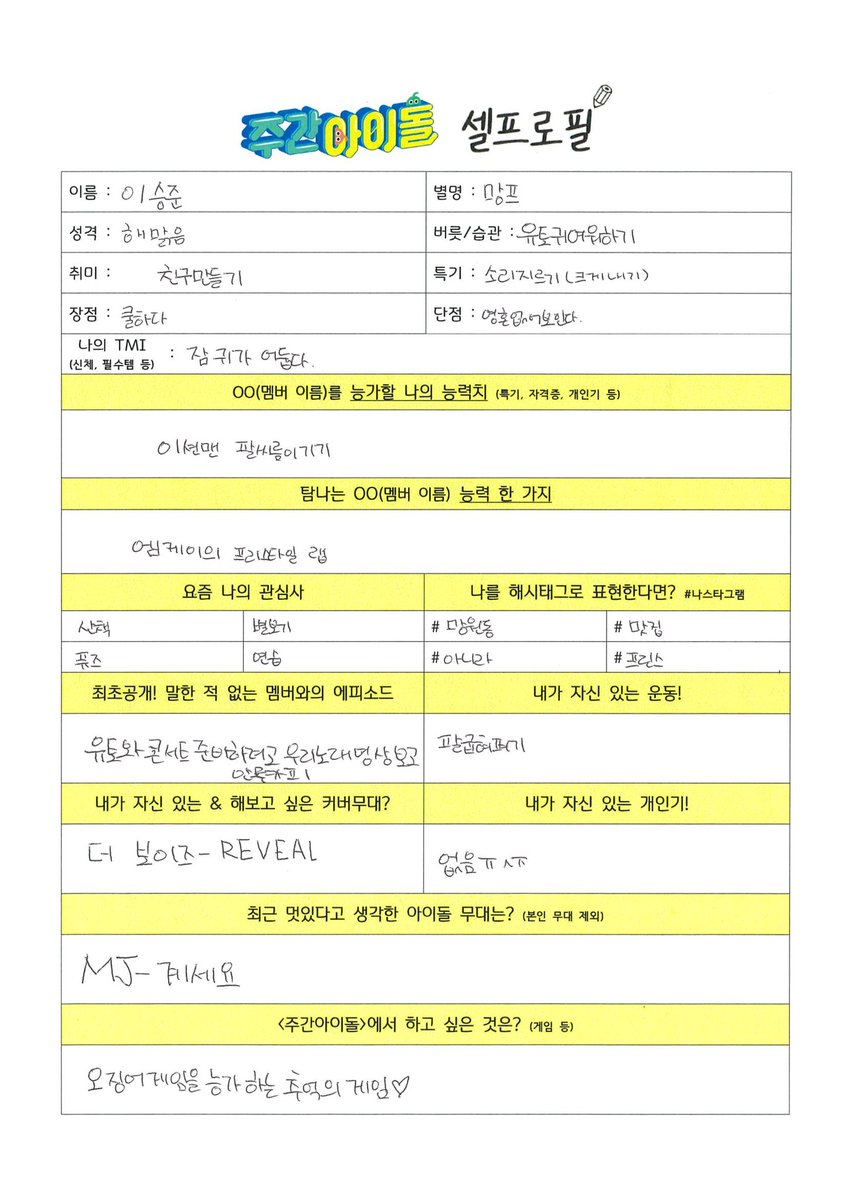 주간아이돌 셀프로필
이름 : 이승준 별명 : 망프
성격 : 해맑음 버릇/습관 : 유토귀여워하기
취미 : 친구만들기 특기 : 소리지르기(크게내기)
장점 : 쿨하다 단점 : 영혼없어보인다.
나의 TMI
(신체, 필수템 등) : 잠귀가 어둡다.
OO(멤버 이름)를 능가할 나의 능력치 (특기, 자격증, 개인기 등)
이션맨 팔씨름이기기
탐나는 OO(멤버 이름) 능력 한 가지
엠케이의 프리스타일 랩
요즘 나의 관심사 나를 해시태그로 표현한다면? #나스타그램
산책 별보기 # 망원동 # 맛집
퓨즈 연습 # 아니라 # 프린스
최초공개! 말한 적 없는 멤버와의 에피소드 내가 자신 있는 운동!
유토와 콘서트 준비하려고 우리노래영상보고 팔굽혀펴기
안무카피
내가 자신 있는 & 해보고 싶은 커버무대? 내가 자신 있는 개인기!
더 보이즈 - REVEAL 없음ㅠㅅㅠ
최근 멋있다고 생각한 아이돌 무대는? (본인 무대 제외)
MJ - 계세요
<주간아이돌>에서 하고 싶은 것은? (게임 등)
오징어게임을 능가하는 추억의 게임♡